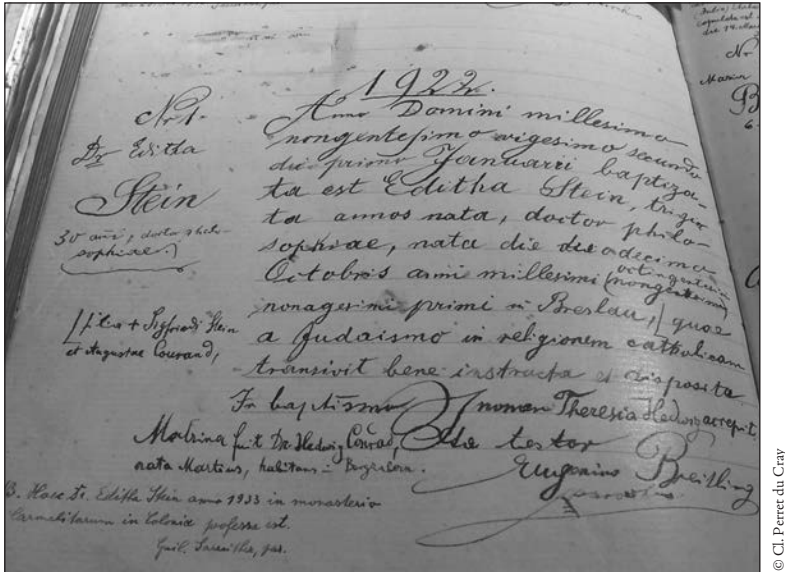 1922.
Nr 1.
Dr Editha
Stein
30 ann, doctor philo-
sophiae.)
Anno Domini millesimo
nongentesimo vigesimo secundo
die primo Januarii baptiza-
ta est Editha Stein, trigin
ta annos nata, doctor philo-
sophiae, nata die duodecima
Octobris anni millesimi octingentesimi
nonagesimi primi in Breslau, quae
a Judaismo in religionem catholicam
transivit bene instructa et disposita
In baptismo nomen Theresia Hedwig accepit.
filia + Sigfriedi Stein
et Augustae Courand,
Matrina fuit Dr. Hedwig Conrad,
nata Martius, habitans in Bergzabern.
Ita testor
Eugenius Breitling
B. Haec Dr. Editha Stein anno 1933 in monasterio
Carmelitarum in Colonia professa est.
© Cl. Perret du Cray